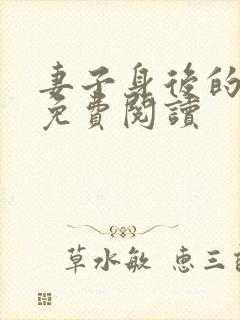 妻子身後的
免費閱讀
草水敏 惠三